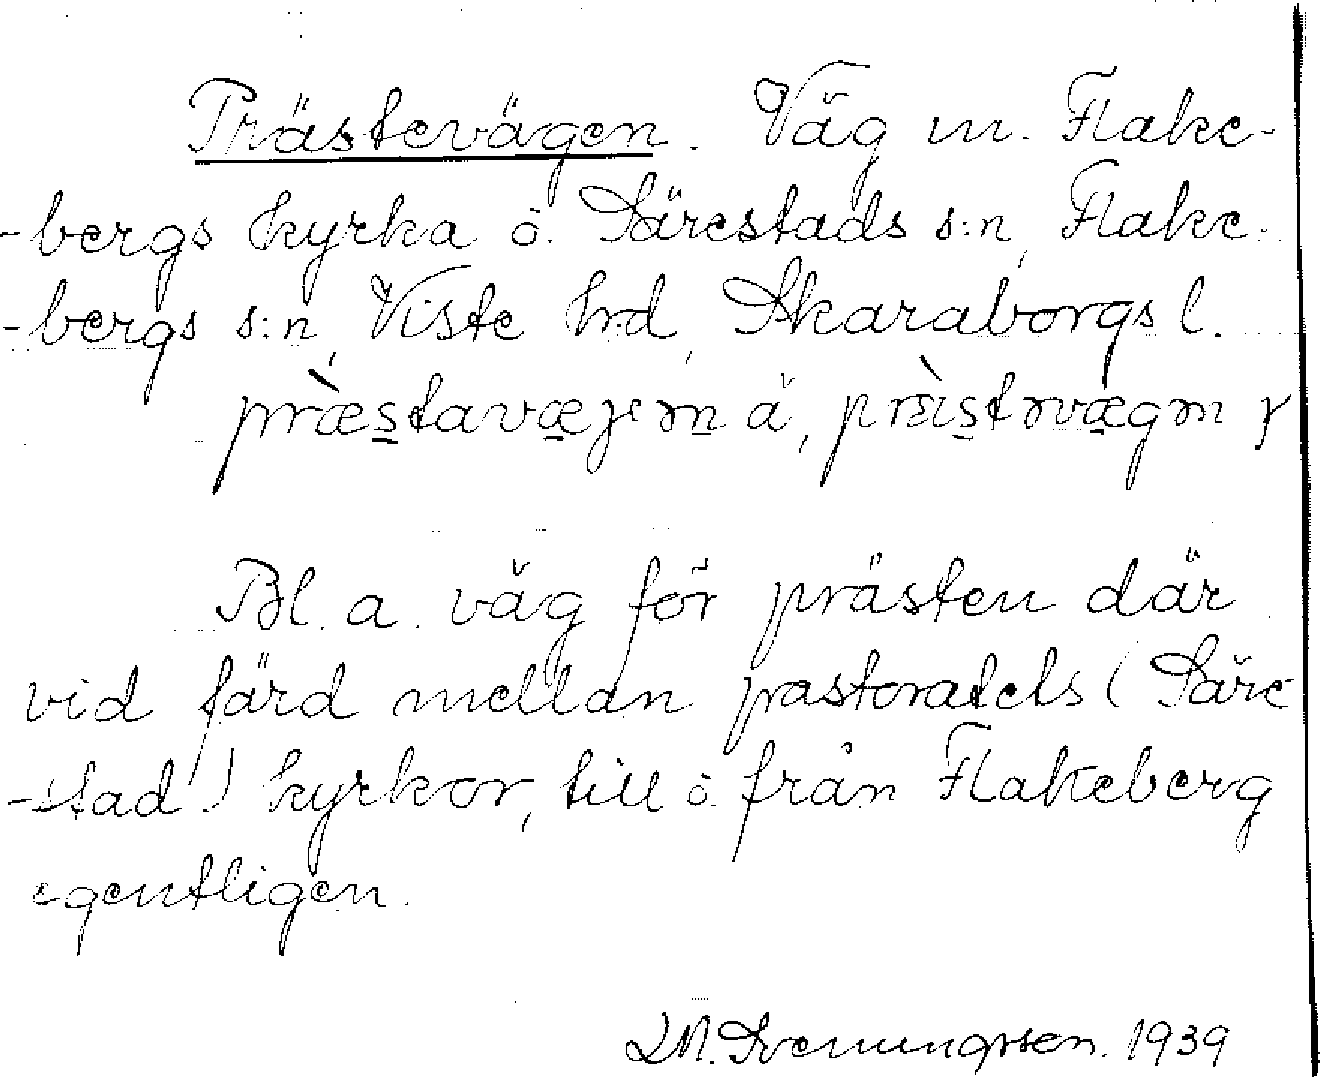 Prästevägen. Väg m. Flake-
-bergs kyrka o. Särestads s:n, Flake-
-bergs s:n, Viste hd, Skaraborgs l.
Bl. a. väg för prästen där
vid färd mellan pastoratets (Säre
-stad) kyrkor, till o. från Flakeberg
egentligen.
1939